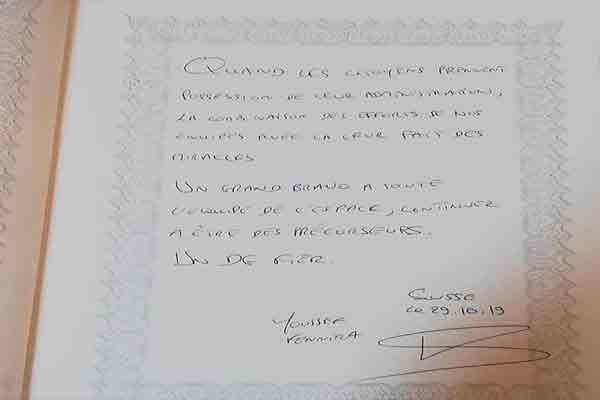 QUAND LES CITOYENS PRENNENT
POSSESSION DE LEUR ADMINISTRATION,
LA COMBINAISON DES EFFORTS DE NOS
ÉQUIPES AVEC LA LEUR FAIT DES
MIRACLES
UN GRAND BRAVO A TOUTE
L'EQUIPE DE L'ESPACE, CONTINUER
A ÊTRE DES PRÉCURSEURS.
UN DE FIER.
SOUSSE
LE 29.10.19
YOUSSEF